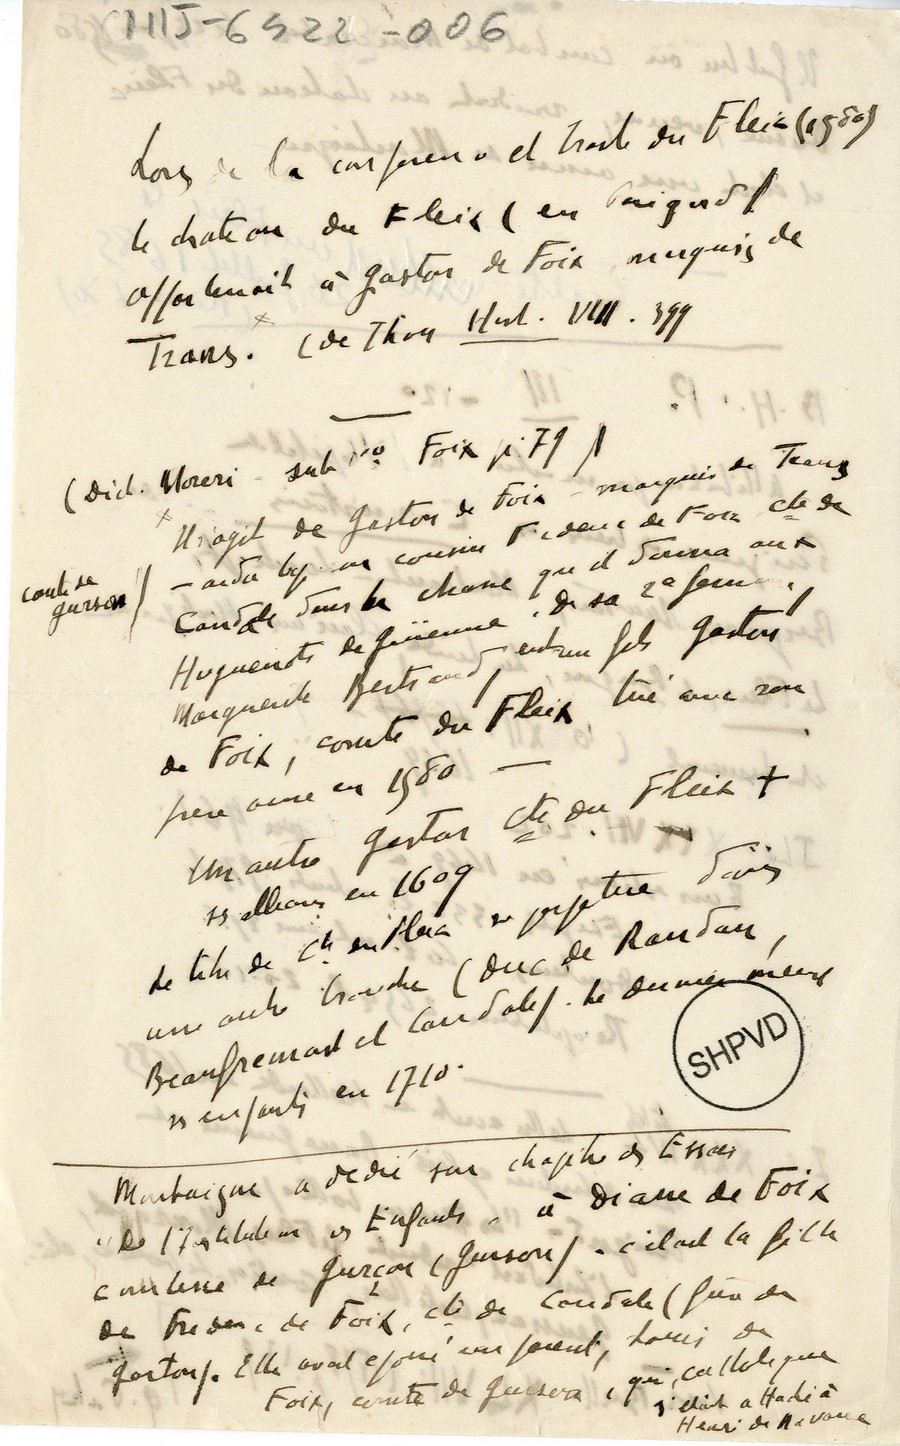 MJ-6522-006
Lors de la conference et traité du Fleix (1580)
le chateau du Fleix (en Perigord)
appartenait à Gaston de Foix marquis de
Trans. x (de Thou Hist. VIII. 399
(Dict. Moreri sub vo Foix p. 79)
x Il s'agit de Gaston de Foix - marquis de Trans
- cousin Frederic de Foix cte de
Candale dans la chasse qu'il donna aux
comte de
Gurson
Huguenots de Guienne. De sa 2e femme,
Marguerite Bertrand, est un fils Gaston
de Foix, comte du Fleix, tué avec son
frere ainé en 1580 —
Un autre Gaston cte du Fleix +
ss alliance en 1609
Le titre de Cte du Fleix se perpetue dans
une autre branche (duc de Randan,
Beaufremont et Candale). Le dernier meurt
ss enfants en 1710.
Montaigne a dedié son chapitre des Essais
"De l'Institution des Enfants" à Diane de Foix
comtesse de Gurçon (Gurson). C'etait la fille
de Frederic de Foix, cte de Candale (
Gaston). Elle avait epousé un parent, Louis de
Foix, comte de Gurson, qui, catholique
s'etait attaché à
Henri de Navarre
SHPVD